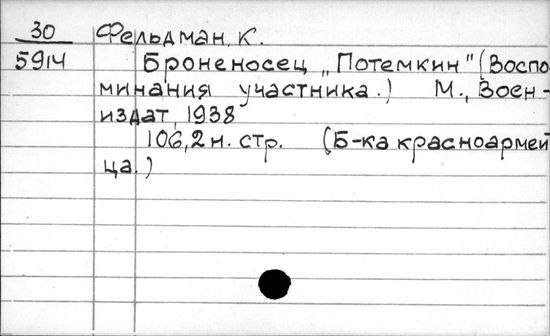 30 Фельдман, К.
5914 Броненосец „Потемкин" (Воспо-
минания участника.) М., Воен-
издат, 1938
106,2 н. стр. (Б-ка красноармей
ца.)